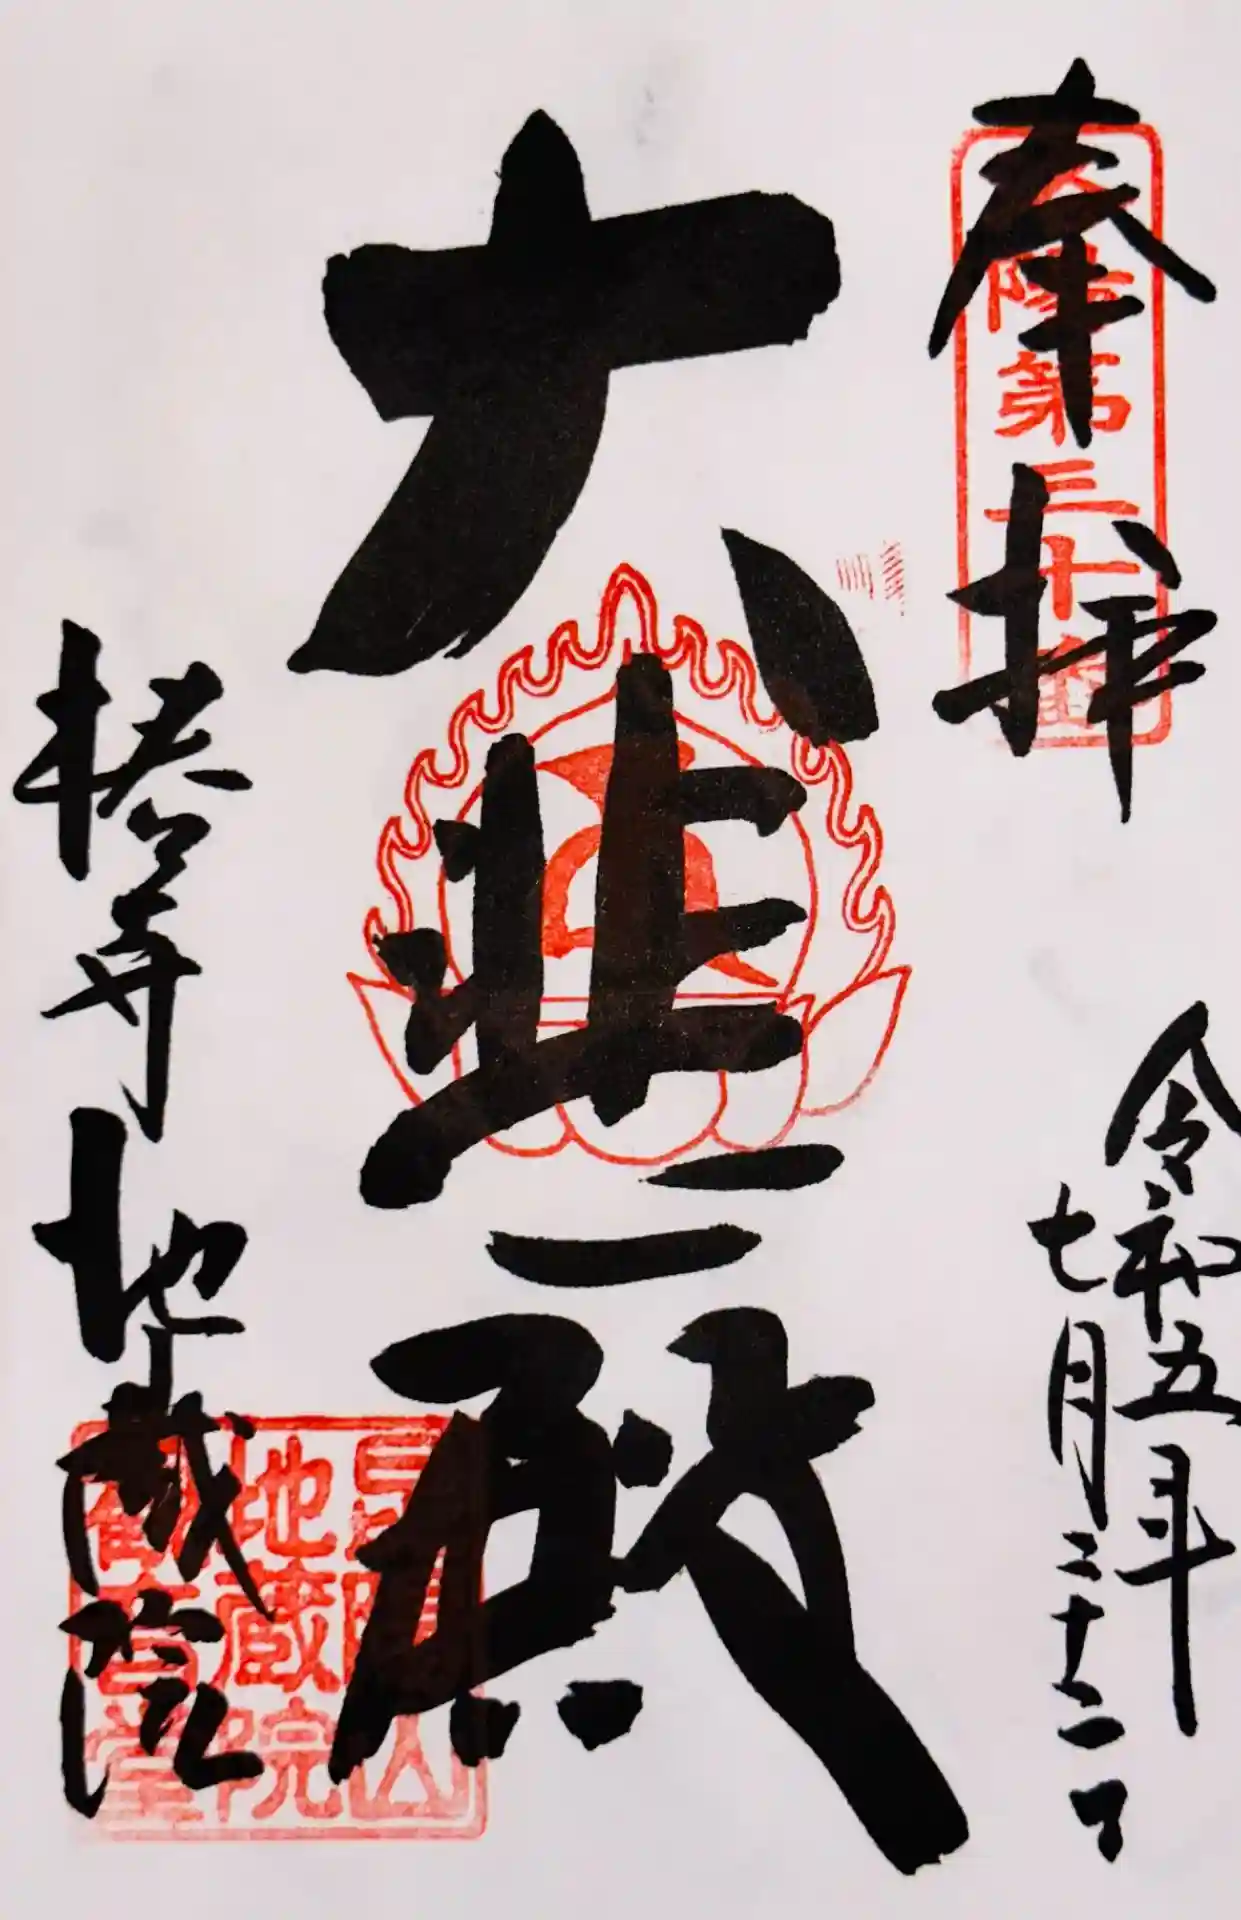 奉拝
令和五年
七月二十二日
大悲殿
椿寺地蔵院
第三十番
地蔵院
観音堂